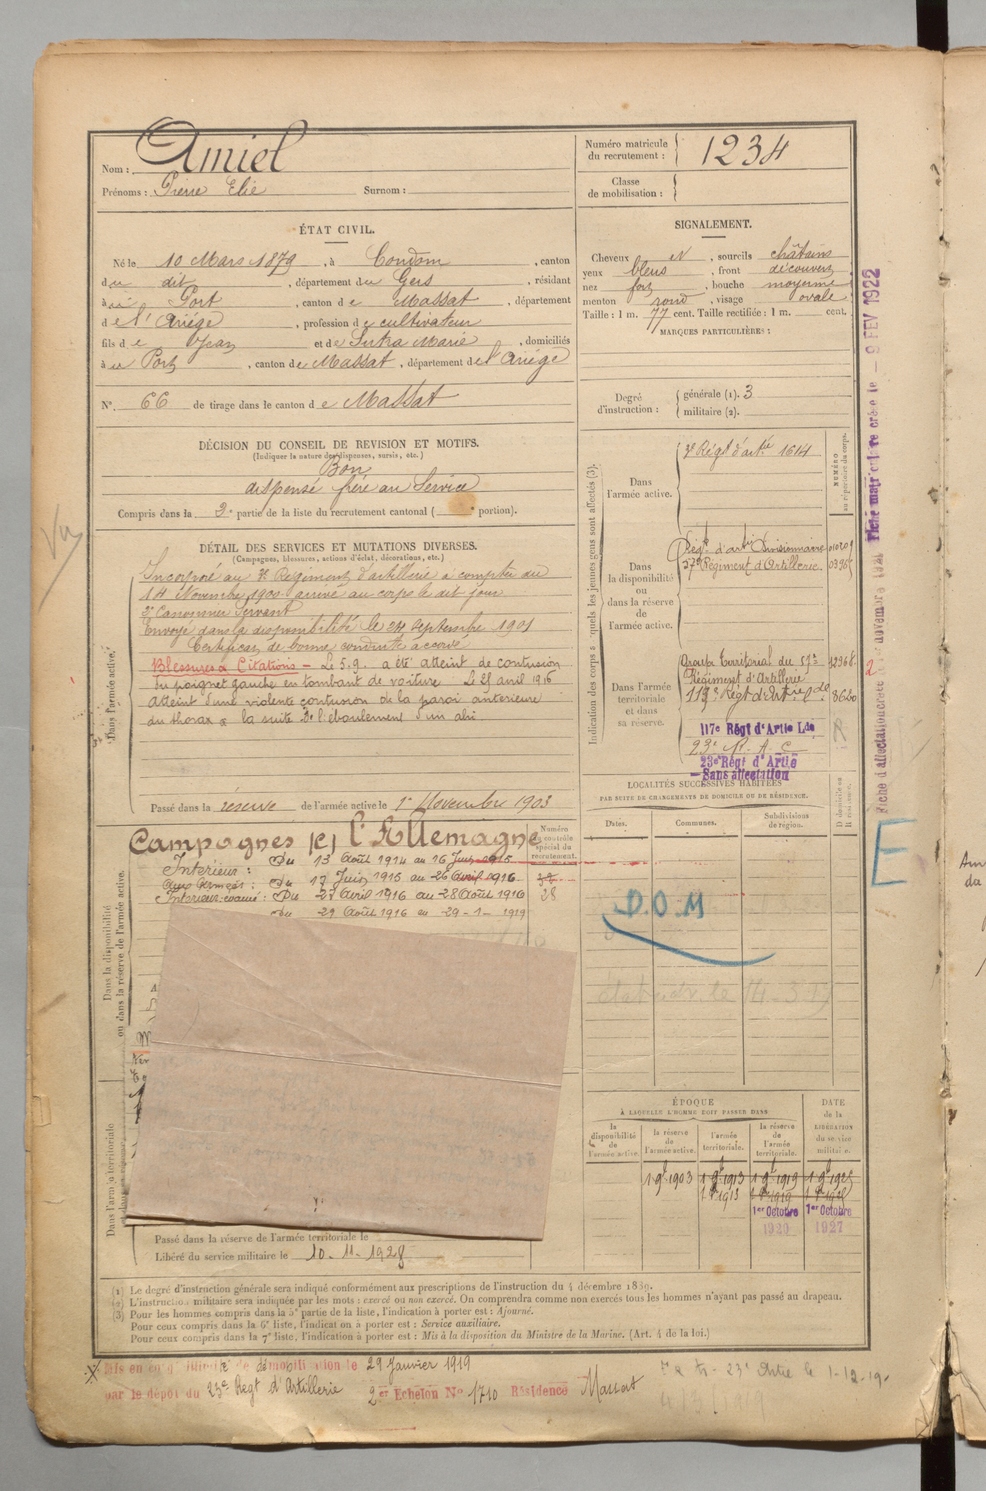 Nom : Amiel
Prénoms : Pierre Elie Surnom :
Numéro matricule du recrutement : 1234
Classe de mobilisation :
ÉTAT CIVIL.
Né le 10 Mars 1879, à Condom, canton
du dit, département du Gers, résidant
à Port, canton de Massat, département
de l'Ariége, profession de cultivateur
fils de Jean et de Marie, domiciliés
à Port, canton de Massat, département de l'Ariége
N° 66 de tirage dans le canton de Massat
SIGNALEMENT.
Cheveux N, sourcils châtains
yeux bleus, front découvert
nez fort, bouche moyenne
menton rond, visage ovale
Taille : 1 m. 77 cent. Taille rectifiée : 1 m. cent.
MARQUES PARTICULIÈRES :
Degré d'instruction : générale (1). 3
militaire (2).
DÉCISION DU CONSEIL DE REVISION ET MOTIFS.
(Indiquer la nature des dispenses, sursis, etc.)
Bon
dispensé frère au Service
Compris dans la 2e partie de la liste du recrutement cantonal ( portion).
DÉTAIL DES SERVICES ET MUTATIONS DIVERSES.
(Campagnes, blessures, actions d'éclat, décorations, etc.)
Dans l'armée active.
Incorporé au 3e Régiment d'artillerie à compter du
14 Novembre 1900 arrivé au corps le dit jour
2e Canonnier Servant
Envoyé dans la disponibilité le 24 Septembre 1901
Certificat de bonne conduite accordé
Blessures & Citations - Le 5.9. a été atteint de contusion
du poignet gauche en tombant de voiture Le 25 avril 1916
Atteint d'une violente contusion de la paroi anterieure
du thorax à la suite de l'éboulement d'un abri
Passé dans la réserve de l'armée active le 1er Novembre 1903
Indication des corps auxquels les jeunes gens sont affectés (3).
NUMÉRO au répertoire du corps.
Dans l'armée active.
3e Régt d'artie 1614
Dans la disponibilité ou dans la réserve de l'armée active.
Régt d'artie Divisionnaire
27e Régiment d'Artillerie
Dans l'armée territoriale et dans sa réserve.
Groupe Territorial du 57e
Régiment d'Artillerie
117e Régt d'Artie Lde
23e R.A.C.
23e Régt d'Artie
Sans affectation
LOCALITÉS SUCCESSIVES HABITÉES
PAR SUITE DE CHANGEMENTS DE DOMICILE OU DE RÉSIDENCE.
Dates. Communes. Subdivisions de région. D domicile ou R résidence.
D.O.M
E
Vu
Dans la disponibilité ou dans la réserve de l'armée active.
Numéro au contrôle spécial du recrutement.
Campagnes c/ l'Allemagne
Intérieur : Du 13 Août 1914 au 16 Juin 1915
Aux Armées : Du 17 Juin 1915 au 26 Avril 1916
Intérieur évacué : Du 27 Avril 1916 au 28 Août 1916
Du 29 Août 1916 au 29-1-1919
28
Dans l'armée territoriale
ÉPOQUE
À LAQUELLE L'HOMME DOIT PASSER DANS
DATE de la LIBÉRATION du service militaire.
la disponibilité de l'armée active.
la réserve de l'armée active.
l'armée territoriale.
la réserve de l'armée territoriale.
1 9bre 1903 1 9bre 1913 1 9bre 1919 1 9bre 1925
1er Octobre 1er Octobre
1920 1927
Passé dans la réserve de l'armée territoriale le
Libéré du service militaire le 10-11-1928
(1) Le degré d'instruction générale sera indiqué conformément aux prescriptions de l'instruction du 4 décembre 1889.
(2) L'instruction militaire sera indiquée par les mots : exercé ou non exercé. On comprendra comme non exercés tous les hommes n'ayant pas passé au drapeau.
(3) Pour les hommes compris dans la 5e partie de la liste, l'indication à porter est : Ajourné.
Pour ceux compris dans la 6e liste, l'indication à porter est : Service auxiliaire.
Pour ceux compris dans la 7e liste, l'indication à porter est : Mis à la disposition du Ministre de la Marine. (Art. 4 de la loi.)
Mis en congé illimité de démobilisation le 29 Janvier 1919
par le dépôt du 23e Régt d'Artillerie 2e Echelon N° 1710 Résidence Massat
23e Artie le 1-12-19
Fiche matriculaire créée le - 9 FEV 1922